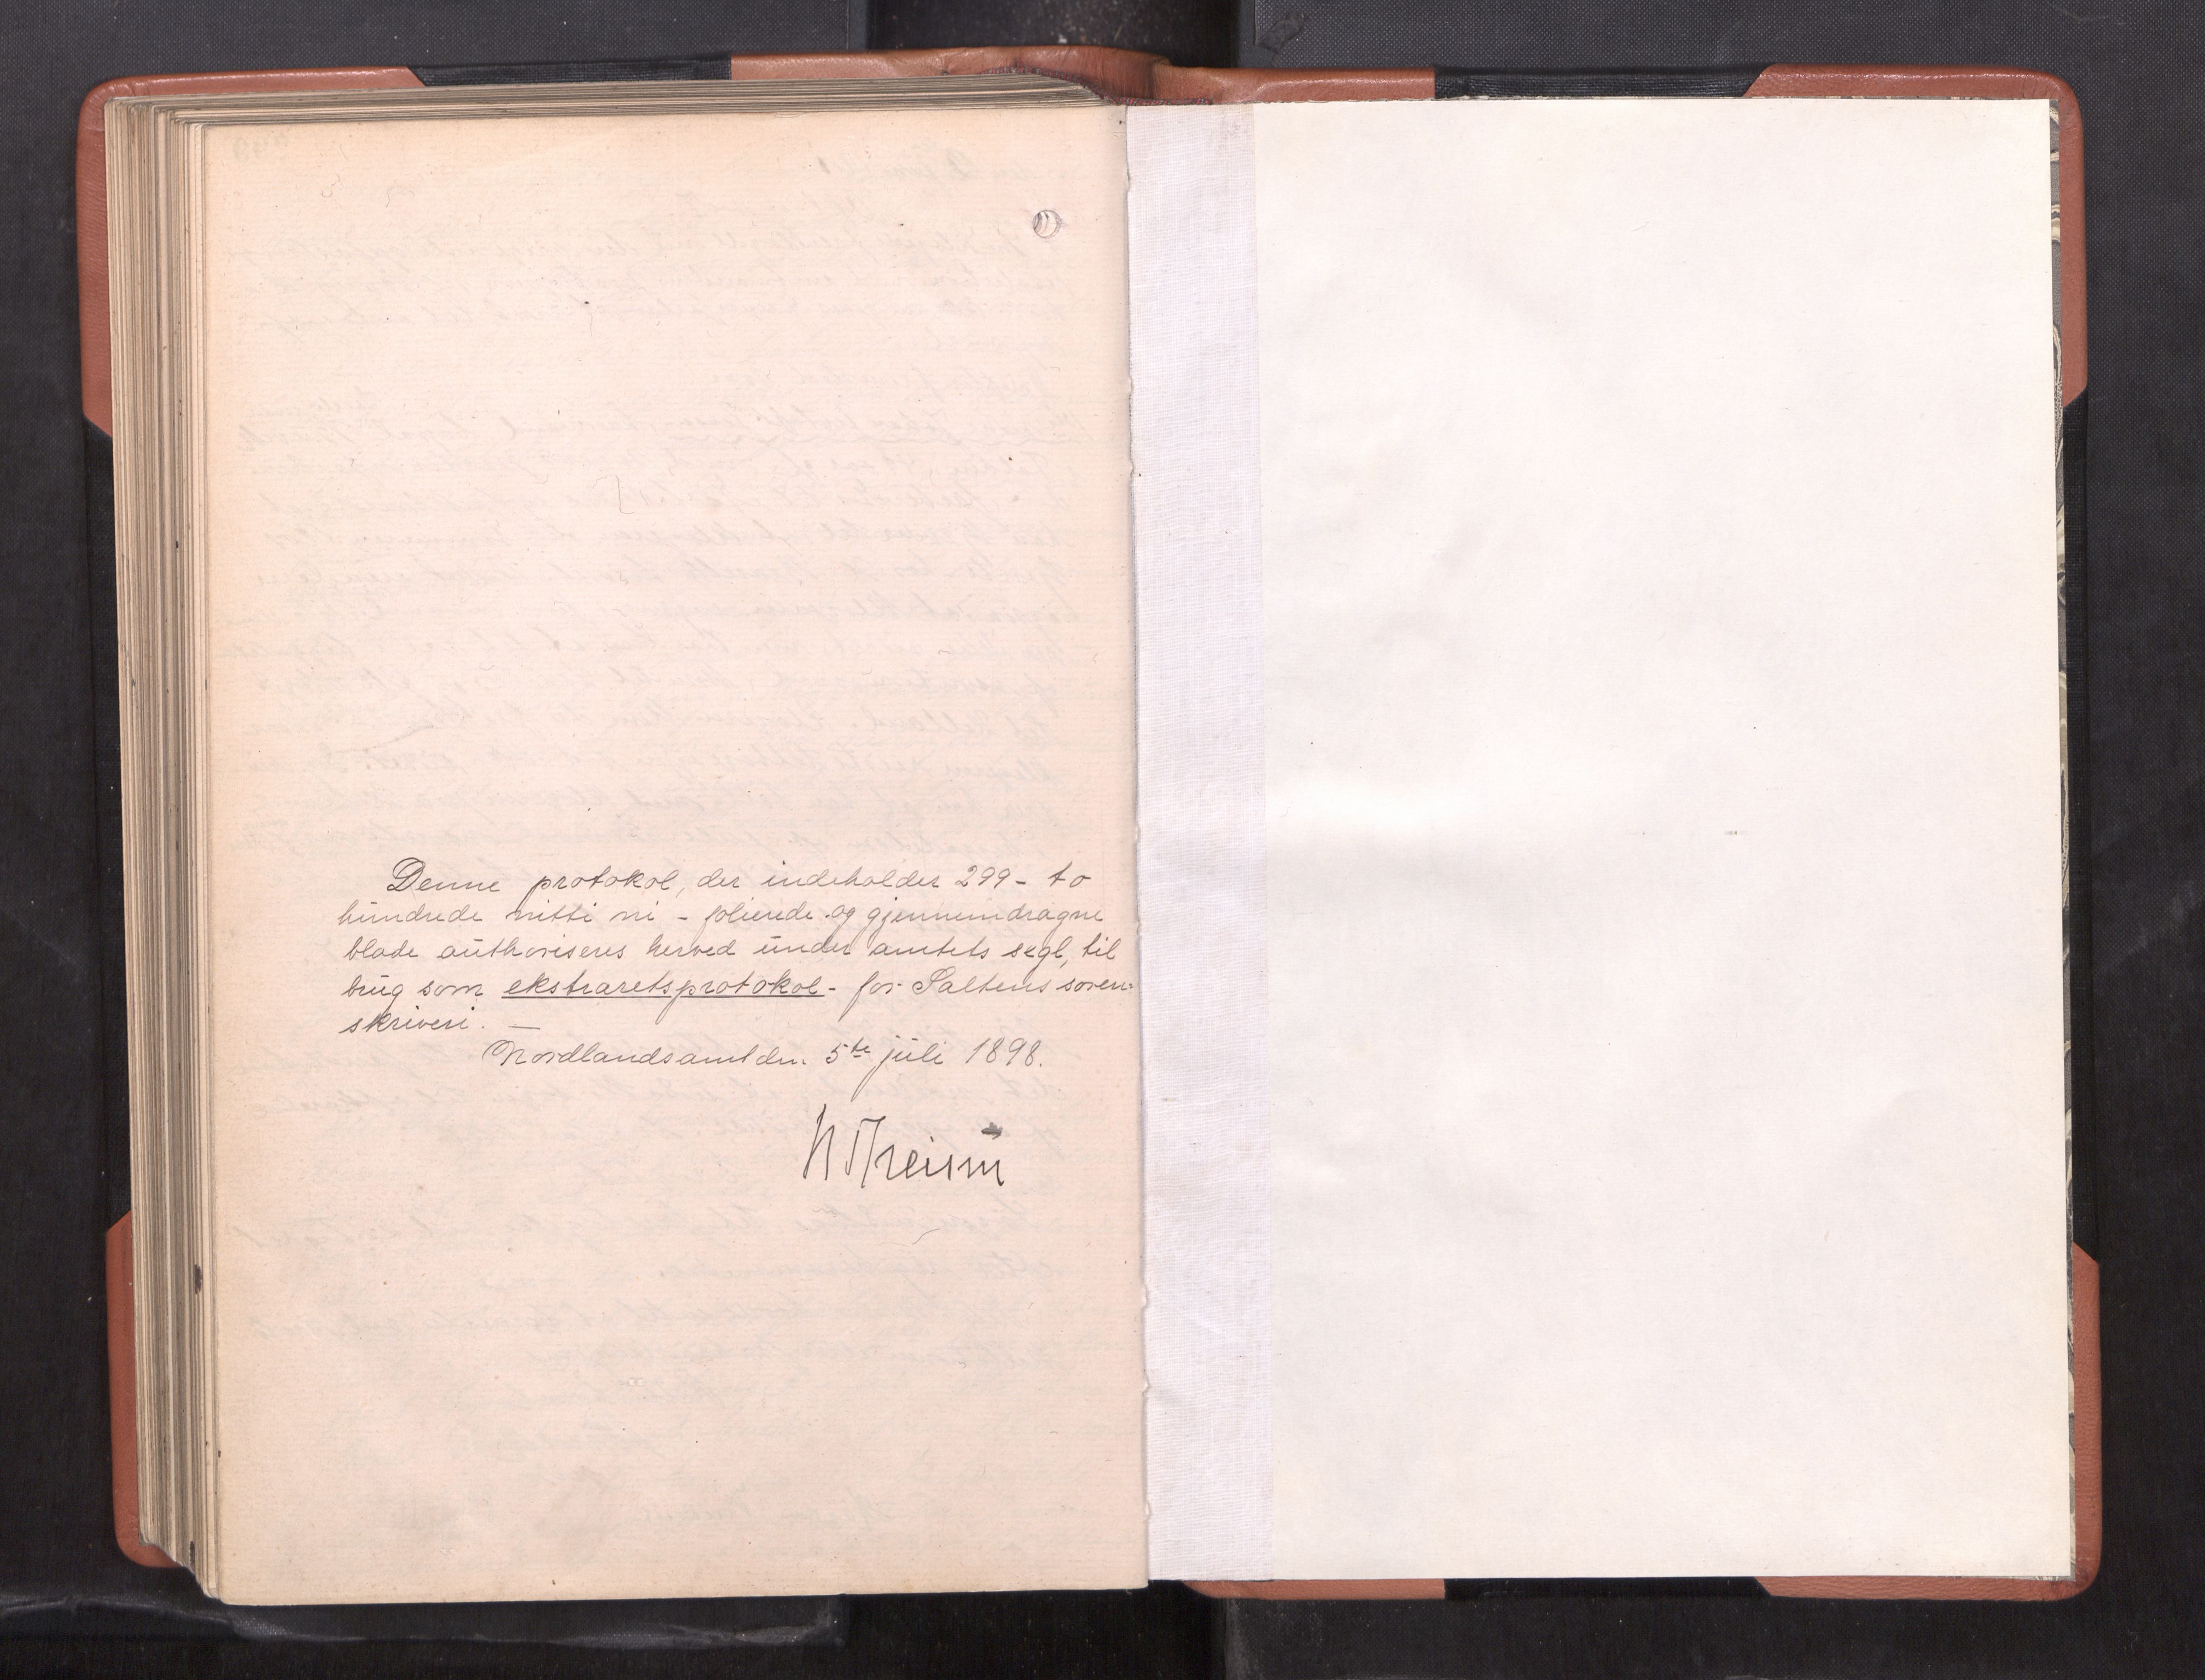 Denne protokol, der indeholder 299 - to
hundrede nitti ni - folierede og gjennemdragne
blade authoriseres herved under amtets segl, til
brug som ekstraretsprotokol - for Saltens soren-
skriveri. —
Nordlands amt den 5te juli 1898.